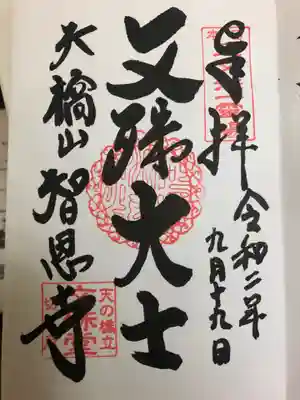 奉拝
令和二年
九月十九日
文殊大士
天橋山
智恩寺
天の橋立
文殊堂